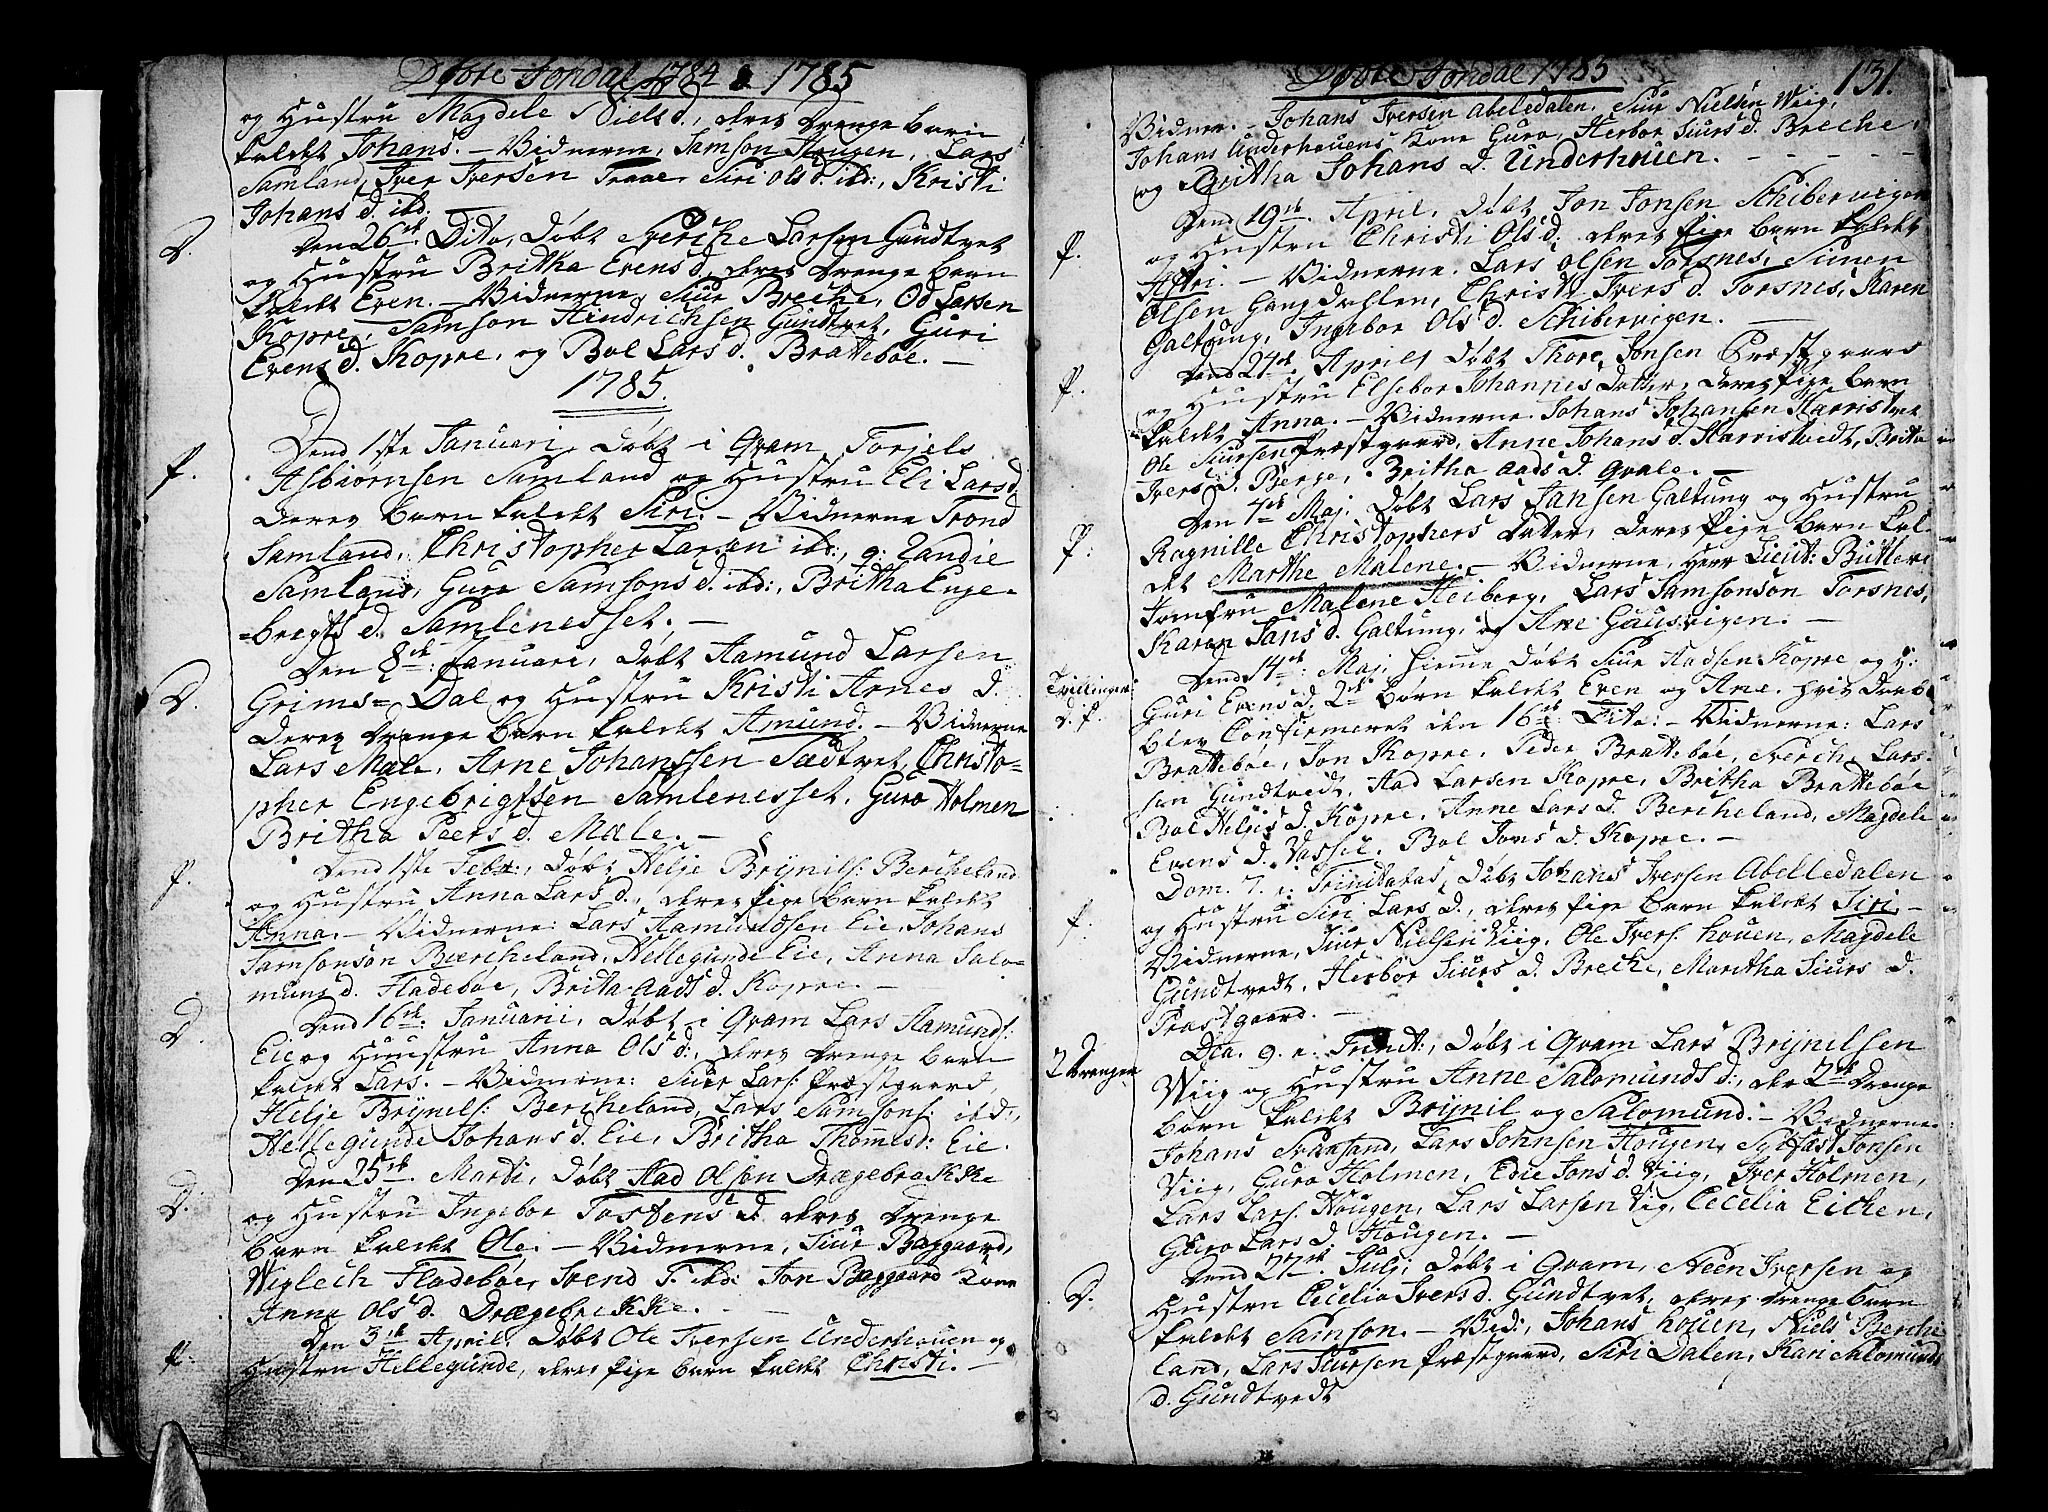 Døbte Jondal 1784 & 1785
og Hustru Magdele Nielsd., deres Drenge Barn
kaldet Johans. – Vidnerne, Samson Hougen, Lars
Samland, Iver Iversen Traae, Siri Ols d. ibd:, Kristi
Johans d. ibd:
D.
Den 26de Dito, Døbt Nerche Larsen Gundtvet
og Hustru Britha Evens d., deres Drenge Barn
kaldet Even. – Vidnerne, Siur Breche, Od Larsen
Kopre, Samson Hindrichsen Gundtvet, Guri
Evens d. Kopre, og Bol Lars d. Brattebøe. –
1785.
P.
Dend 1ste Januari, Døbt i Qvam, Torjels
Asbiørnsen Samland og Hustru Eli Lars d.
deres Barn kaldet Siri. – Vidnerne Trond
Samland, Christopher Larsen ibd:,
Samland, Guro Samsons d. ibd:, Britha Enge-
=bregts d. Samlenesset. –
D.
Den 8de: Januari, Døbt Aamund Larsen
Grims= Dal og Hustru Kristi Arnes d.
deres Drenge Barn kaldet Amund. – Vidnerne
Lars Mæle, Arne Johanssen Sædtvet, Christo=
pher Engebrigtsen Samlenesset, Guro Holmen
Britha Peers d. Mæle. –
P.
Dend 1ste Febr:, Døbt Helje Brÿnils: Bercheland
og Hustru Anna Lars d., deres Pige Barn kaldet
Anna. – Vidnerne: Lars Aamundsen Eie, Johans
Samsonsøn Bærcheland, Hellegunde Eie, Anna Salo=
muns d. Fladebøe, Brita Aads d. Kopre. –
D.
Dend 16de: Januari, Døbt i Qvam Lars Aamunds:
Eie og Huustru Anna Ols d:, deres Drenge Barn
kaldet Lars. – Vidnerne: Siur Lars: Præstgaard,
Helje Brÿnels: Bercheland, Lars Samsons: ibd:,
Hellegunde Johans d. Eie, Britha Thomes d: Eie.
D.
Den 25de Marti, Døbt Aad Olsen Drægebrekke
og Hustru Ingebor Tostens d. deres Drenge
Barn kaldet Ole. – Vidnerne, Siur Baggaard,
Wiglech Fladebøe, Svend T. ibd: Jon Baggaard Kone
Anna Ols d. Drægebrekke. –
P.
Den 3de April. Døbt Ole Iversen Underhouen og
Hustru Hellegunde, deres Pige Barn kaldet Christi. –
Døbte Jondal 1785
131.
Vidner. – Johans Iversen Abeledalen, Siur Nielsen Wiig,
Johans Underhouens Kone Guro, Herbor Siurs d. Breche,
og Britha Johans d. Underhouen. – – – – –
P.
Dend 19de. April, Døbt Jon Jonsen Schibervigen
og Hustru Christi Ols d. deres Pige Barn kaldet
– Vidnerne. Lars Olsen Torsnes, Simen
Olsen Gangdahlen, Christi Ivers d. Torsnes, Karen
Galtung, Ingebor Ols d. Schibervigen. –
P.
Dend 24de April Døbt Thore Jonsen Præstgaard
og Hustru Elsebor Johannes Datter, deres Pige Barn
kaldet Anna. – Vidnerne Johans Johansen Harristvet
Ole Siursen Præstgaard, Anne Johans d. Harristvedt, Brita
Ivers d. Berge, Britha Aads d. Qvale. –
P:
Den 7de Maj. Døbt Lars Jansen Galtung og Hustru
Ragnille Christophers Datter, deres Pige Barn kal-
det Marthe Malene. – Vidnerne, Herr Lieut: Butter
Jomfru Malene Heiberg, Lars Samsonsøn Torsnes,
Karen Jans d. Galtung, og Ane Gausvigen. –
Tvillinger:
D. P.
Dend 14de: Maj, Hieme Døbt Siur Aadsen Kopre og H:
Guri Evens d. 2de Børn kaldet Even og Ane. Hvis Daab
blev Confirmeret den 16de: Dito: – Vidnerne: Lars
Brattebøe, Jon Kopre, Peder Brattebøe, Nerche Lar-
sen Gundtvedt, Aad Larsen Kopre, Britha Brattebøe
Bol Heljes d. Kopre, Anne Lars d. Bercheland, Magdele
Evens d. Vassel, Bol Jons d. Kopre. –
P.
Dom. 7. p: Trinitatas, Døbt Johans Iversen Abelledalen
og Hustru Siri Lars d., deres Pige Barn kaldet Siri. –
Vidnerne, Siur Nielsen Viig, Ole Ivers: Houen, Magdele
Gundtvedt, Herbor Siurs d. Breche, Maritha Siurs d.
Præstgaard. –
2 Drenger
9. p: Trinit:, Døbt i Qvam Lars Brÿnelsen
Wiig og Hustru Anne Salomunds d:, der 2de Drenge
Børn kaldet Brÿnil og Salomund. – Vidnerne:
Johans Svansand, Lars Johnsen Hougen, Sÿfast Jonsen
Viig, Guro Holmen, Edie Jons d. Viig, Iver Holmen,
Lars Lars: Hougen, Lars Larsen Vig, Cecelia Eichen,
Guro Lars d. Hougen. –
D.
Dend 27de. Julj, Døbt i Qvam, Neen Iversen og
Hustru Cecelia Ivers d. Gundtvet, deres Drenge Barn
kaldet Samson. – Vid:, Johans Houen, Niels Berche
land, Lars Siursen Præstgaard, Siri Dalen, Kari Salomunds
d. Gundtvedt